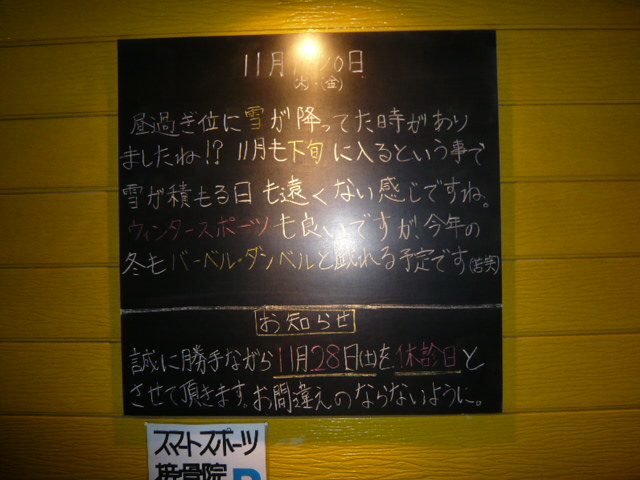 11月 20日
(金)
昼過ぎ位に雪が降ってた時があり
ましたね!? 11月も下旬に入るという事で
雪が積もる日も遠くない感じですね。
ウィンタースポーツも良いですが今年の
冬もバーベル・ダンベルと戯れる予定です(苦笑)
お知らせ
誠に勝手ながら11月28日(土)を休診日と
させて頂きます。お間違えのならないように。
スマートスポーツ
接骨院